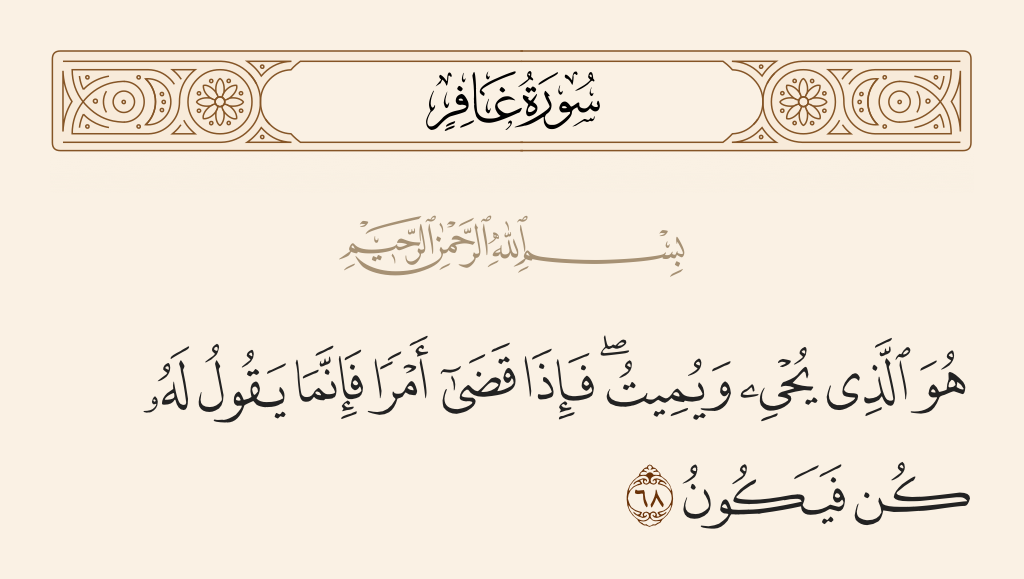 سُورَةُ غَافِرٍ
بِسْمِ ٱللَّهِ ٱلرَّحْمَٰنِ ٱلرَّحِيمِ
هُوَ ٱلَّذِى يُحْىِۦ وَيُمِيتُ ۖ فَإِذَا قَضَىٰٓ أَمْرًا فَإِنَّمَا يَقُولُ لَهُۥ
كُن فَيَكُونُ ٦٨